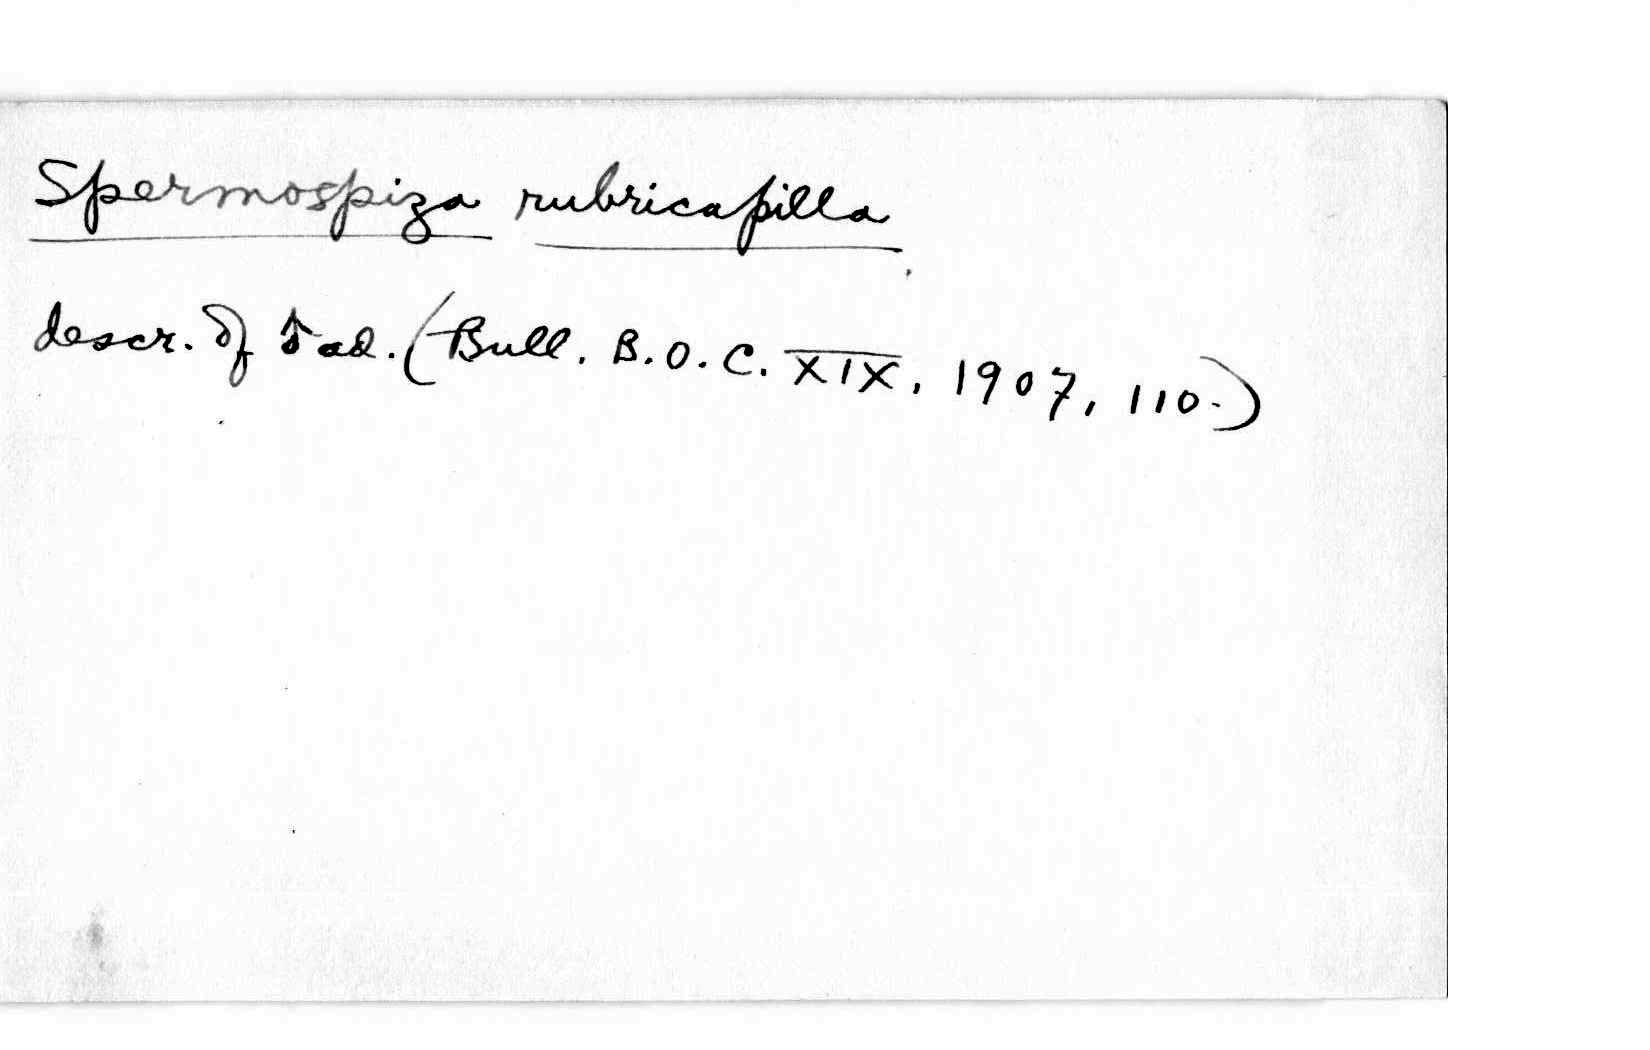 Spermospiza rubricapilla
descr. of ♂ ad. (Bull. B.O.C. XIX, 1907, 110.)